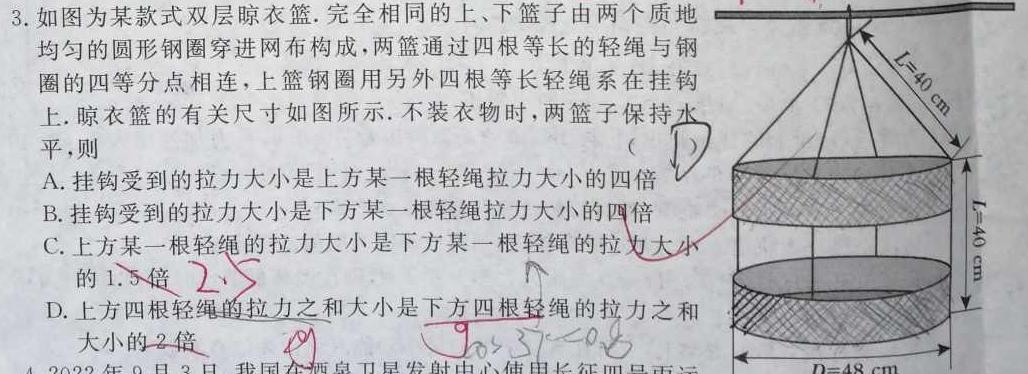 3. 如图为某款式双层晾衣篮. 完全相同的上、下篮子由两个质地
均匀的圆形钢圈穿进网布构成, 两篮通过四根等长的轻绳与钢
圈的四等分点相连, 上篮钢圈用另外四根等长轻绳系在挂钩
上. 晾衣篮的有关尺寸如图所示. 不装衣物时, 两篮子保持水
平, 则 ( D )
A. 挂钩受到的拉力大小是上方某一根轻绳拉力大小的四倍
B. 挂钩受到的拉力大小是下方某一根轻绳拉力大小的四倍
C. 上方某一根轻绳的拉力大小是下方某一根轻绳的拉力大小
的 1.5 倍 2.5
D. 上方四根轻绳的拉力之和大小是下方四根轻绳的拉力之和
大小的 2 倍
cos37=0.8
L=40 cm
L=40 cm
D=48 cm
4. 2022 年 9 月 3 日, 我国在酒泉卫星发射中心使用长征四号丙运